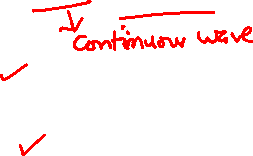 Continuous wave